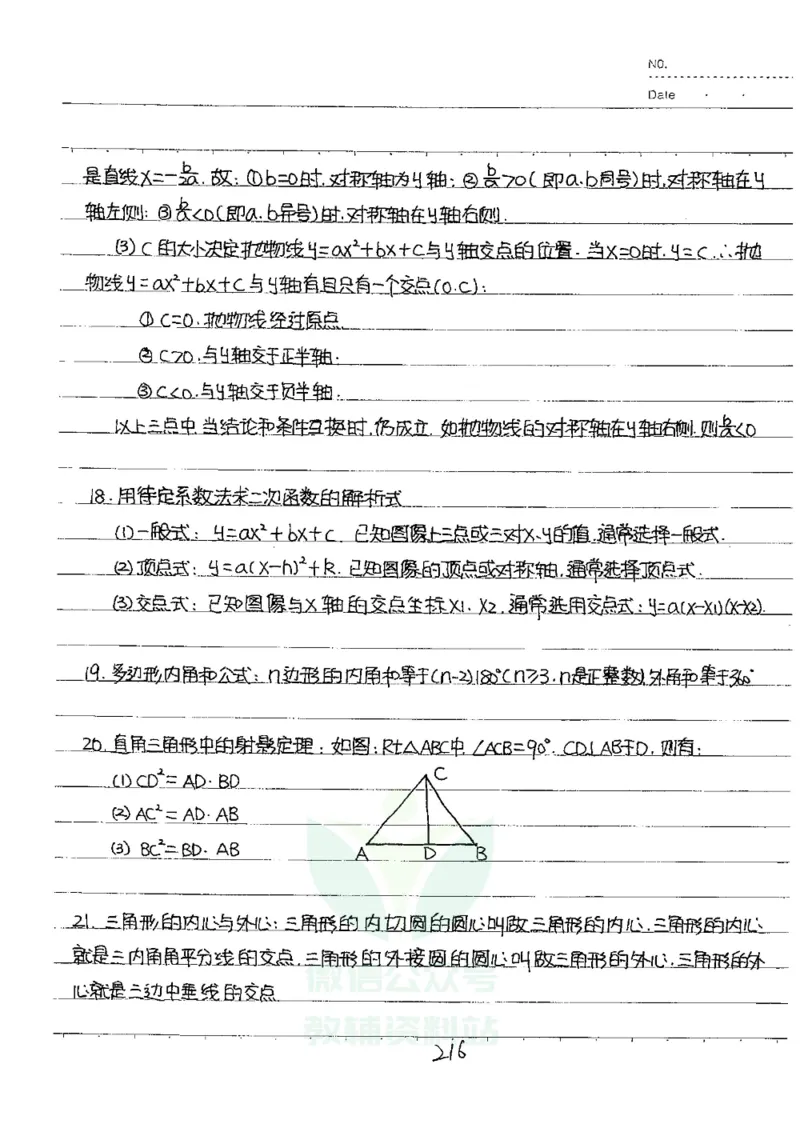 NO.
Date
是直线X=-b/2a.故:①b=0时,对称轴为y轴;②b/a>0(即a.b同号)时,对称轴在y
轴左侧;③b/a<0(即a.b异号)时.对称轴在y轴右侧.
(3)C的大小决定抛物线y=ax²+bx+c与y轴交点的位置.当X=0时.y=c.∴抛
物线y=ax²+bx+c与y轴有且只有一个交点(0.c):
①C=0.抛物线经过原点
②C>0.与y轴交于正半轴.
③C<0.与y轴交于负半轴.
以上三点中.当结论和条件互换时,仍成立.如抛物线的对称轴在y轴右侧.则b/a<0
18.用待定系数法求二次函数的解析式
(1)一般式:y=ax²+bx+c.已知图像上三点或三对X、y的值.通常选择一般式.
(2)顶点式:y=a(x-h)²+k.已知图像的顶点或对称轴.通常选择顶点式.
(3)交点式:已知图像与X轴的交点坐标X1.X2.通常选用交点式:y=a(x-x1)(x-x2).
19.多边形内角和公式:n边形的内角和等于(n-2)180°(n≥3.n是正整数).外角和等于360°
20.直角三角形中的射影定理:如图:Rt△ABC中.∠ACB=90°.CD⊥AB于D.则有:
(1)CD²=AD·BD
(2)AC²=AD·AB
(3)BC²=BD·AB
C
A D B
21.三角形的内心与外心:三角形的内切圆的圆心叫做三角形的内心.三角形的内心
就是三内角角平分线的交点.三角形的外接圆的圆心叫做三角形的外心.三角形的外
心就是三边中垂线的交点.
微信公众号
教辅资料站
216